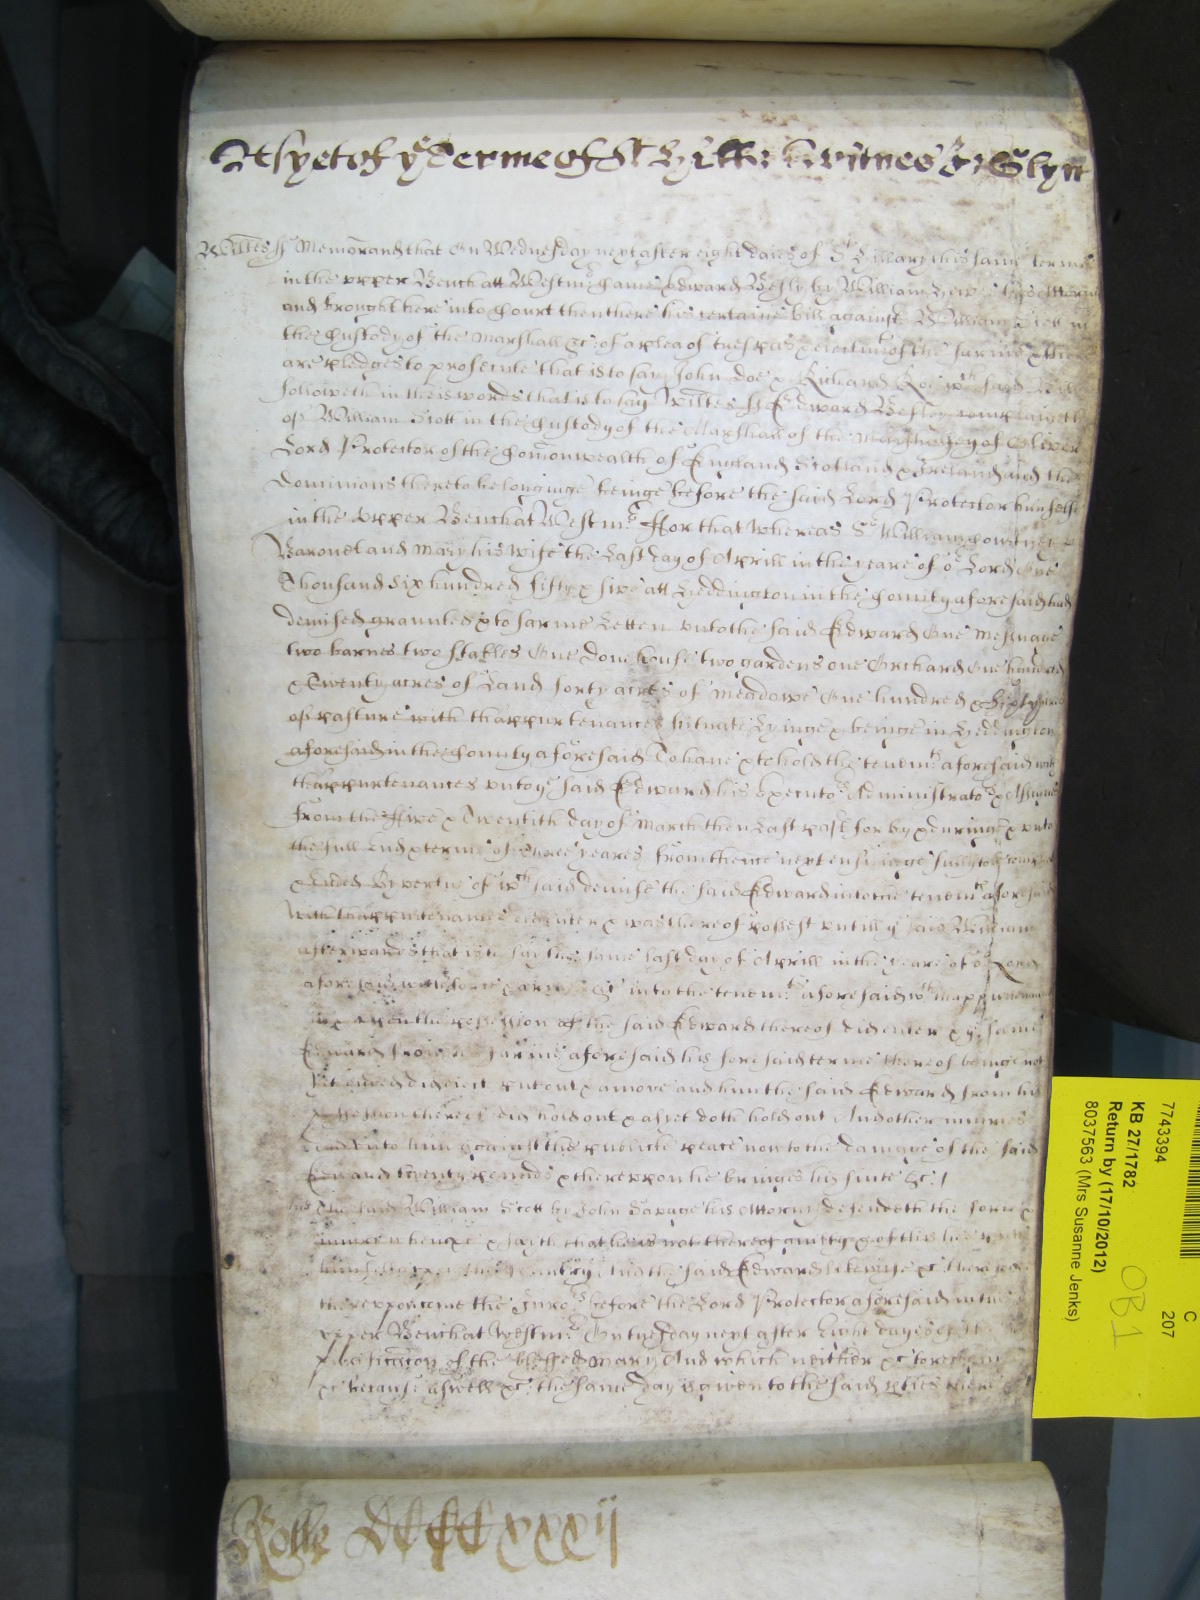 As yet of ye Terme of St Hill: Witnes J: Glyn
Wiltes ss Memorand that On Wednesday next after eight daies of St Hillary this same terme
in the upper Bench att Westmr Came Edward Besly by William his Attorn
and brought here into Court then there his certaine bill against William Scott in
the Custody of the Marshall &c of a plea of trespas & eiectmt of the farme & there
are pledges to prosecute that is to say John Doe & Richard Roe wch said Bill
followeth in theis words that is to say Wiltes ss Edward Besley complaineth
of William Scott in the Custody of the Marshall of the Marshalsey of Oliver
Lord Protector of the Comonwealth of England Scotland & Ireland and the
Dominions thereto belonginge beinge before the said Lord Protector himselfe
in the upper Bench at Westmr ffor that whereas Sr William Courtney
Baronet and Mary his wife the Last day of Aprill in the yeare of or Lord One
Thousand six hundred fifty & five att Leddington in the County aforesaid had
demised graunted & to farme Letten unto the said Edward One Messuage
two barnes two stables One dove house two gardens one Orchard One hundred
& Twenty acres of Land forty acres of meadowe One hundred & Sixty acres
of pasture with thappurtenances situate Lyinge & beinge in Leddington
aforesaid in the County aforesaid To have & to hold the tenemts aforesaid with
thappurtenances unto ye said Edward his Executors Administrators & Assignes
from the ffive & Twentith day of March then Last past for by & during & unto
the full end & terme of three yeares from thence next ensuinge fully to be compleat
& Ended By vertue of wch said demise the said Edward into the tenemts aforesaid
with thappurtenances did enter & was thereof possest untill ye said William
afterwards that is to say the same last day of Aprill in the yeare of or Lord
aforesaid with force & armes &c into the tenemts aforesaid wth thappurtenances
in & upon the possession of the said Edward thereof did enter & ye same
Edward from his farme aforesaid his foresaid terme thereof beinge not
yet ended did eiect put out & amove and him the said Edward from his
possession thereof did hold out & as yet doth hold out And other iniuries
did unto him against the publicke peace now to the damage of the said
Edward twenty pounds & thereupon he bringes his suite &c /
And the said William Scott by John Savage his Attorny defendeth the force &
iniury when &c & sayth that he is not thereof guilty & of this he
himselfe upon the Country And the said Edward likewise &c therefore
thereupon come the Jurors before the Lord Protector aforesaid in the
upper Bench at Westmr On tuesday next after Eight dayes of the
purificacon of the blessed Mary And which neither &c to recognize
&c because aswell &c the same day is given to the said pties there
Rolle DCCCCxxxij
7743394
KB 27/1782
Return by (17/10/2012)
8037563 (Mrs Susanne Jenks)
C
207
OB 1